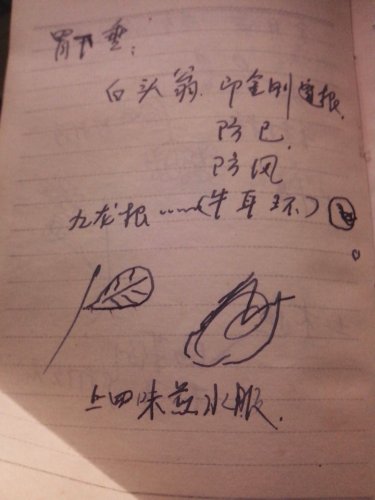 胃下垂：
白头翁. 即金刚 根.
防已.
防风
九龙根……(牛耳环)
上四味煎水服.